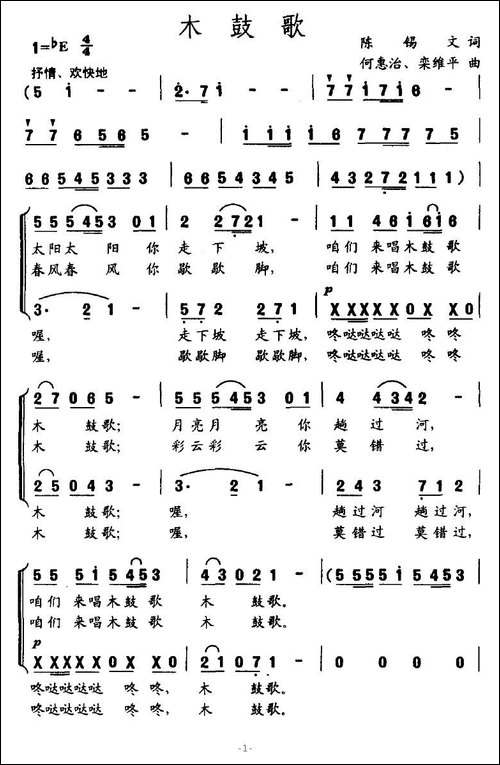 木鼓歌
1=♭E 4/4
陈锡文 词
抒情、欢快地
何惠治、栾维平 曲
(5 i - - | 2·71 - - | 7717i6 -
77 6565 - | iiii 1677775
66545333 | 66543345 | 43272111)
55545301 | 2 2721 - | 11 46i6i6
太阳太 阳你 走下坡, 咱们 来唱木鼓歌
春风春 风你 歇歇脚, 咱们 来唱木鼓歌
3· 21 - | 572 272 | p XXXXX0XX0
喔, 走下坡 走下坡, 咚哒哒哒哒 咚咚
喔, 歇歇脚 歇歇脚, 咚哒哒哒哒 咚咚
27065 - | 55545301 | 4 4342 -
木 鼓歌; 月亮月 亮你 趟过河,
木 鼓歌; 彩云彩 云你 莫错过,
25043 - | 3· 21 - | 243 712
木 鼓歌; 喔, 趟过河 趟过河,
木 鼓歌; 喔, 莫错过 莫错过,
55 5i5453 | 43021 - | (5555i5453
咱们 来唱木鼓歌 木 鼓歌。
咱们 来唱木鼓歌 木 鼓歌。
p XXXXX0XX0 | 21071 - | 0 0 0 0
咚哒哒哒哒 咚咚, 木 鼓歌。
咚哒哒哒哒 咚咚, 木 鼓歌。
-1-